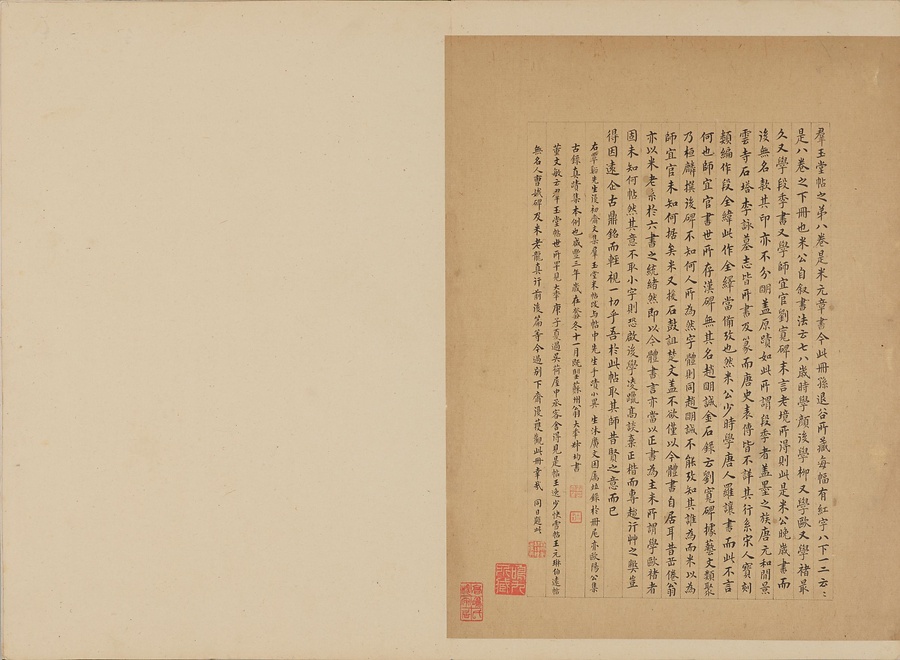 羣玉堂帖之弟八卷是米元章書今此冊孫退谷所藏每幅有紅字八下一二云云
是八卷之下冊也米公自叙書法云七八歲時學顏後學柳又學歐又學褚最
久又學段季書又學師宜官劉寬碑末言老境所得則此是米公晚歲書而
後無名款其印亦不分朙蓋原蹟如此所謂段季者蓋墨之族唐元和間景
雲寺石塔李詠墓志皆所書及篆而唐史表傳皆不詳其行系宋人寶刻
類編作段全緯此作全繹當俻攷也然米公少時學唐人羅讓書而此不言
何也師宜官書世所存漢碑無其名趙明誠金石錄云劉寬碑據藝文類聚
乃桓麟撰後碑不知何人所為然字體則同趙明誠不能攷知其誰為而米以為
師宜官未知何據矣米又接石鼓詛楚文蓋不欲僅以今體書自居耳昔岳倦翁
亦以米老系於六書之統緒然即以今體書言亦當以正書為主米所謂學歐褚者
固未知何帖然其意不取小字則恐啟後學凌躐高談棄正楷而專趨行艸之獘豈
得因遠企古鼎銘而輕視一切乎吾於此帖取其師昔賢之意而已
右覃谿先生復初齋文集羣玉堂米帖攷与帖中先生手蹟小異 生沐廣文囙屬坿錄於冊尾亦歐陽公集
古錄真蹟集本例也咸豐三年歲在癸冬十一月既朢蘇州翁大年叔均書
董文敏云羣玉堂帖世所罕見大年庚子夏過吳荷屋中丞客舍得見是帖王逸少快雪帖王元琳伯遠帖
無名人曹娥碑及米老龍真行前後篇等今過別下齋復叚觀此冊幸哉 同日題此